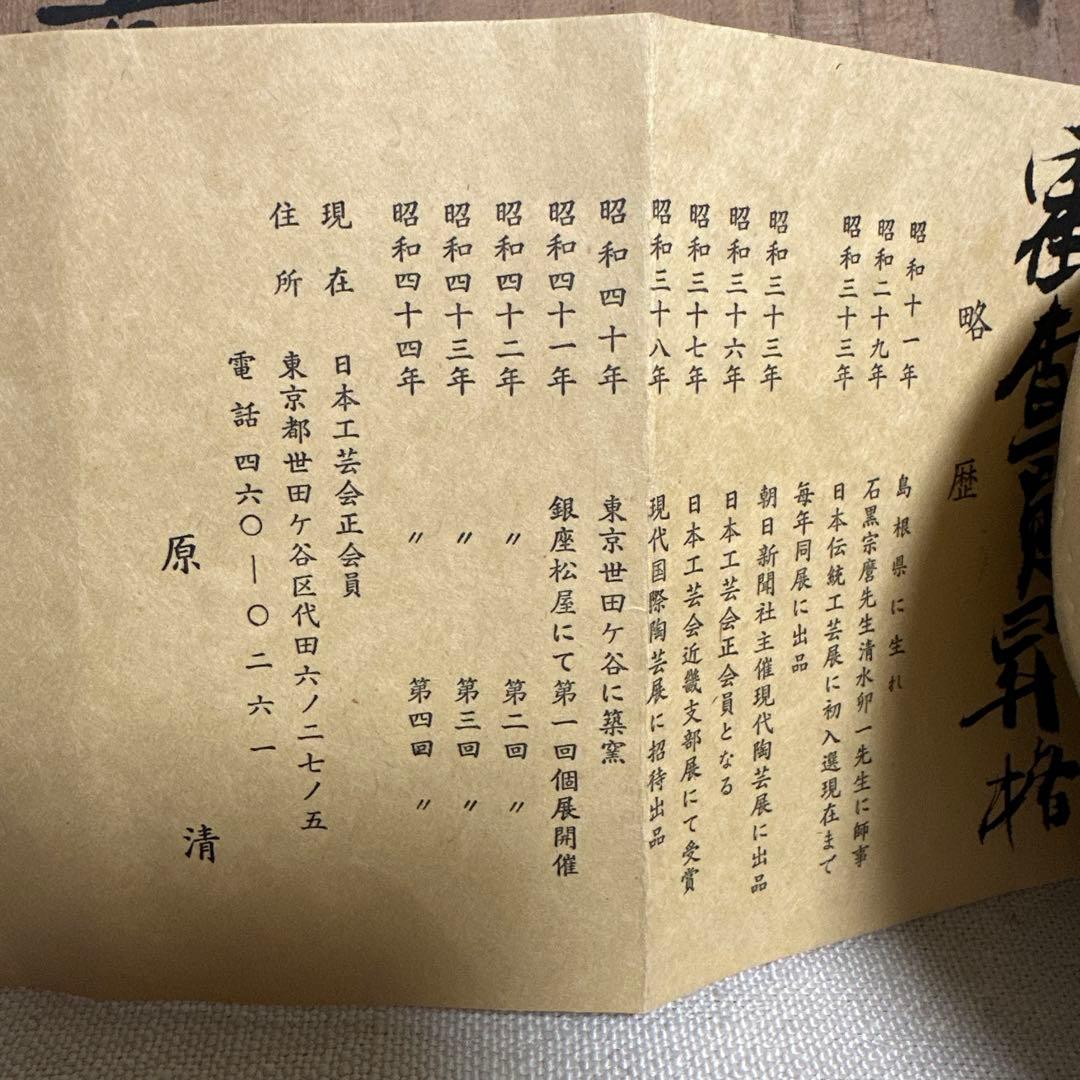 審査員昇格
略歴
昭和十一年 島根県に生れ
昭和二十九年 石黒宗麿先生清水卯一先生に師事
昭和三十三年 日本伝統工芸展に初入選現在まで
毎年同展に出品
昭和三十三年 朝日新聞社主催現代陶芸展に出品
昭和三十六年 日本工芸会正会員となる
昭和三十七年 日本工芸会近畿支部展にて受賞
昭和三十八年 現代国際陶芸展に招待出品
昭和四十年 東京世田ケ谷に築窯
昭和四十一年 銀座松屋にて第一回個展開催
昭和四十二年 〃 第二回 〃
昭和四十三年 〃 第三回 〃
昭和四十四年 〃 第四回 〃
現在 日本工芸会正会員
住所 東京都世田ケ谷区代田六ノ二七ノ五
電話 四六〇―〇二六一
原清